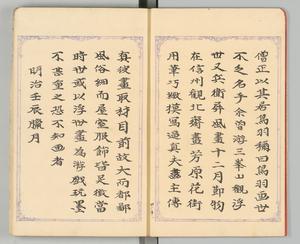 僧正以其若為羽獮曰為羽画世
不乏名手余曽游三峯山観浮
世又兵衛舜風畫十二月節物
在信州観北斎畫芳原花街
用筆巧緻摸写逼真夫畫主傳
真彼畫取材目前故大而都鄙
風俗細而屋室服飾皆足徴當
時世或以浮世畫為游戯玩墨
不甚重之恐不知画者
明治壬辰臘月